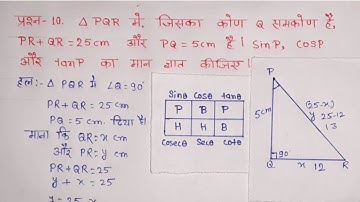 प्रश्न-10. △PQR में, जिसका कोण Q समकोण है,
PR+QR=25cm और PQ=5cm है। sinP, cosP
और tanP का मान ज्ञात कीजिए।
हल:- △PQR में ∠Q=90°
PR+QR=25cm
PQ=5cm. दिया है।
माना कि QR=x cm
और PR=y cm
PR+QR=25
y+x=25
y=25-x
sinθ cosθ tanθ
P B P
H H B
cosecθ secθ cotθ
P
5cm
(25-x)
y 25-12
13
90°
Q x 12 R